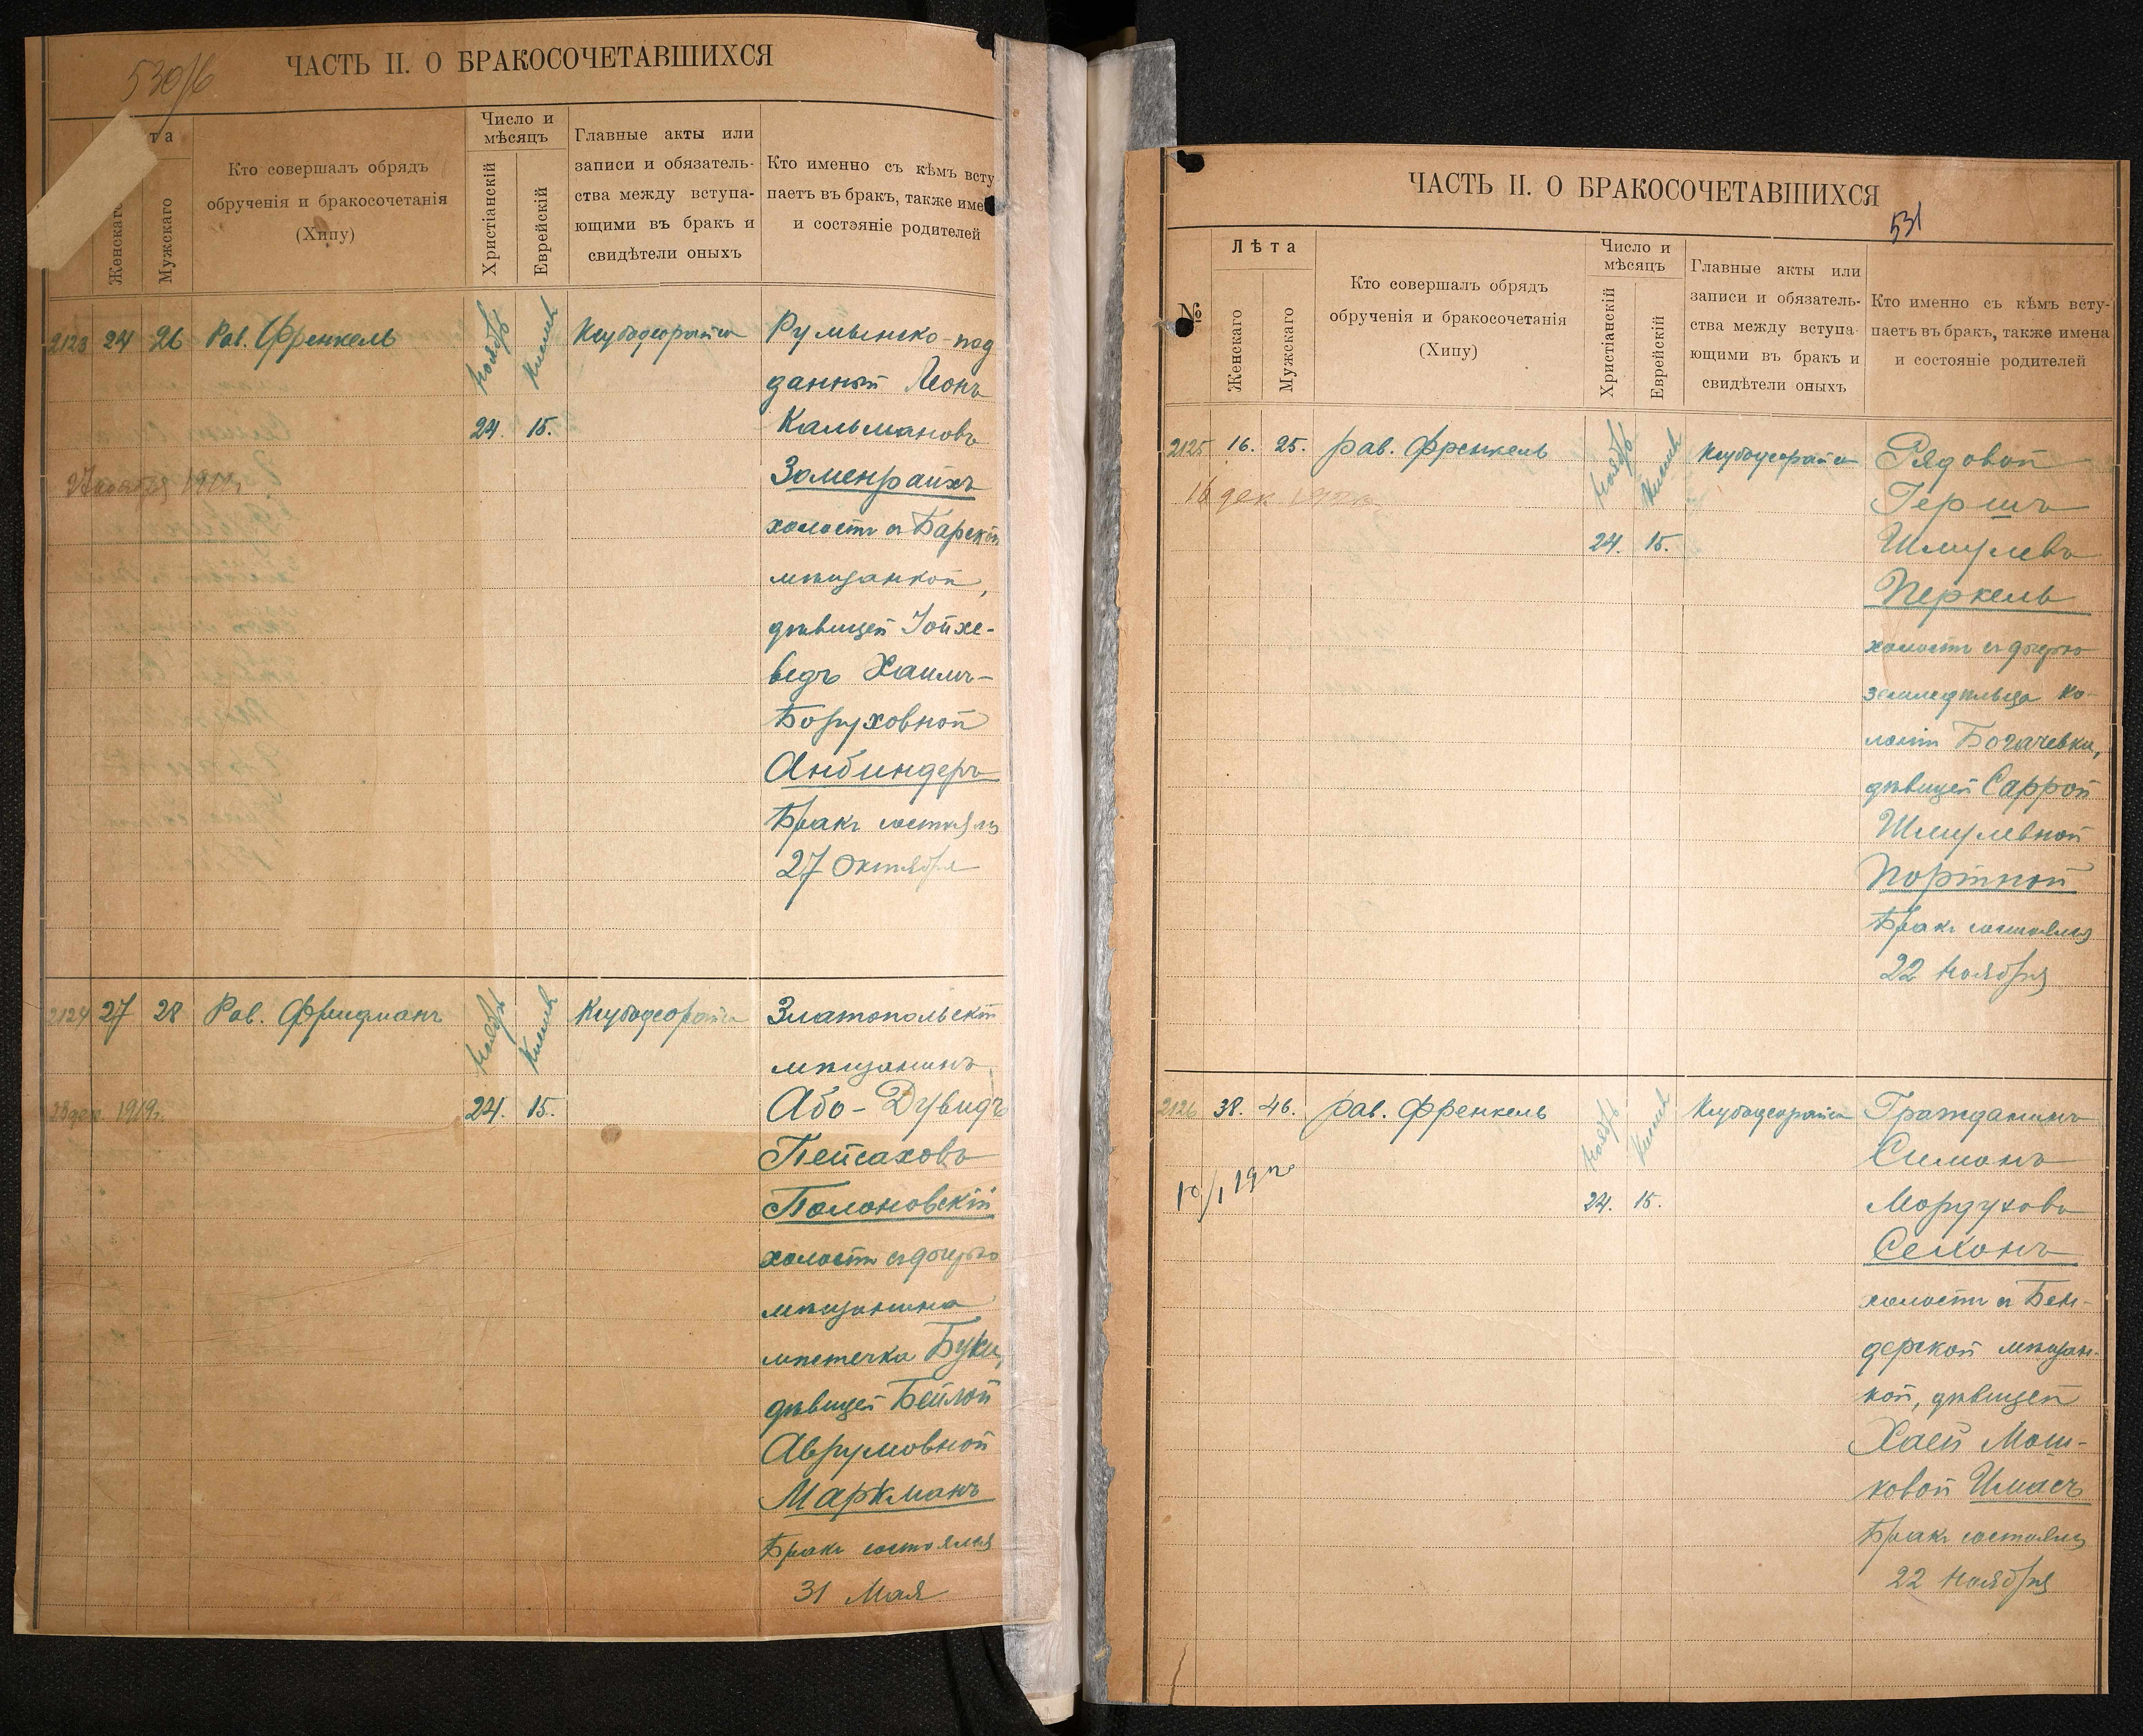 530/б
ЧАСТЬ II. О БРАКОСОЧЕТАВШИХСЯ
та
Женскаго
Мужскаго
Кто совершалъ обрядъ
обрученія и бракосочетанія
(Хипу)
Число и
мѣсяцъ
Христіанскій
Еврейскій
Главные акты или
записи и обязатель-
ства между вступа-
ющими въ бракъ и
свидѣтели оныхъ
Кто именно съ кѣмъ всту
паетъ въ бракъ, также име
и состояніе родителей
2123 24 26 Рав. Френкель Ноябрь Кислев
24. 15.
Румынско-под
данный Леонъ
Кальмановъ
Заменрайхъ
холостъ съ Барской
мѣщанкой,
дѣвицей Іойхе-
ведъ Хаимъ-
Боруховной
Анбиндеръ
Бракъ состоялся
27 Октября
2124 27 28 Рав. Фридманъ Ноябрь Кислев
23 дек. 1919г.
24. 15.
Златопольскій
мѣщанинъ
Або-Дувидъ
Пейсаховъ
Полоновскій
холостъ съ дочерью
мѣщанина
мѣстечка Буки,
дѣвицей Бейлой
Аврумовной
Маркманъ
Бракъ состоялся
31 Мая
ЧАСТЬ II. О БРАКОСОЧЕТАВШИХСЯ
531
№
Лѣта
Женскаго
Мужскаго
Кто совершалъ обрядъ
обрученія и бракосочетанія
(Хипу)
Число и
мѣсяцъ
Христіанскій
Еврейскій
Главные акты или
записи и обязатель-
ства между вступа-
ющими въ бракъ и
свидѣтели оныхъ
Кто именно съ кѣмъ всту-
паетъ въ бракъ, также имена
и состояніе родителей
2125 16. 25. Рав. Френкель Ноябрь Кислев
16 дек
24. 15.
Рядовой
Гершъ
Шмулевъ
Перкель
холостъ съ дочерью
земледѣльца ко-
лоніи Богачевки,
дѣвицей Саррой
Шмулевной
Портной
Бракъ состоялся
22 Ноября
2126 38. 46. Рав. Френкель Ноябрь Кислев
24. 15.
Гражданинъ
Симонъ
Мордуховъ
Селонъ
холостъ съ Бен-
дерской мѣщан-
кой, дѣвицей
Хаей Мош-
ковой Имасъ
Бракъ состоялся
22 Ноября